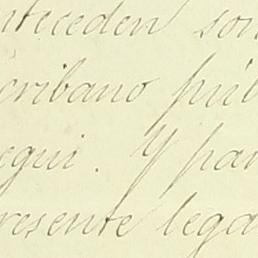 nteceden son
cribano púb
egui. Y par
resente lega